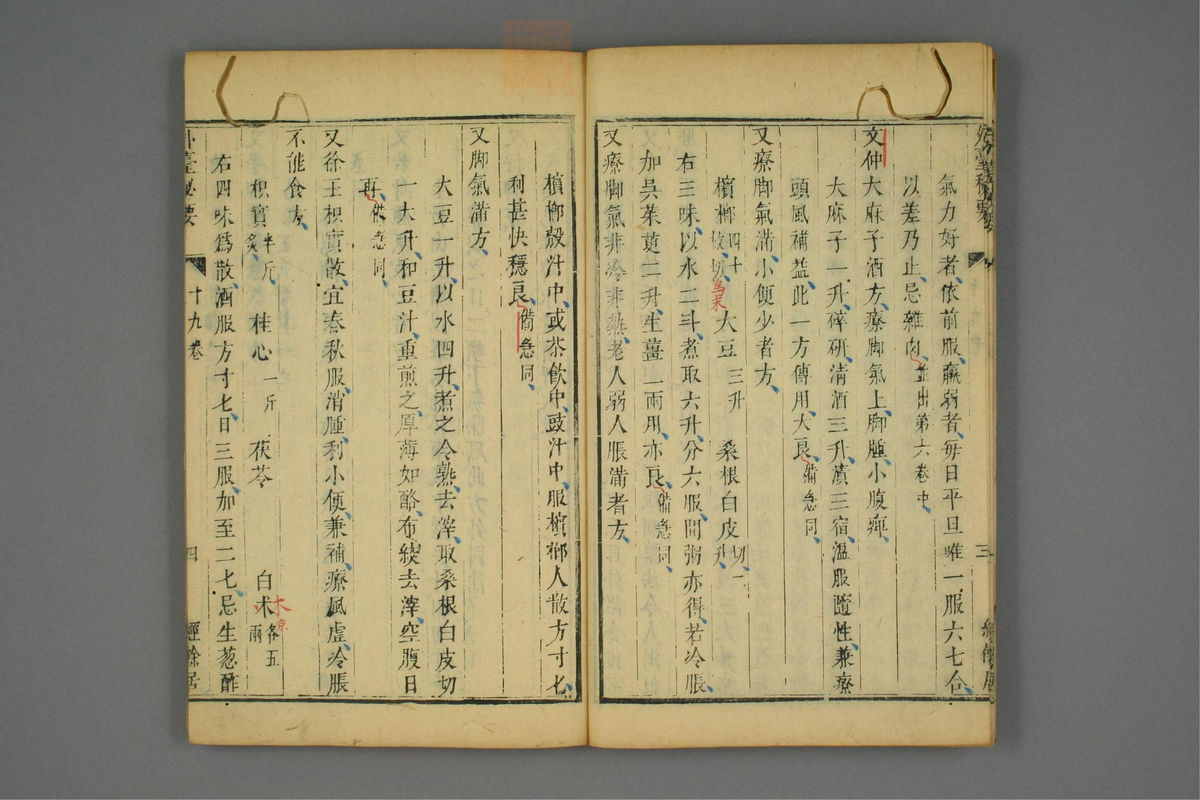 外臺秘要 三 經餘居
氣力好者依前服羸弱者每日平旦唯一服六七合
以差乃止忌雜肉並出第六卷中
文仲大麻子酒方療脚氣上脚腫小腹痹
大麻子一升碎研清酒三升漬三宿溫服隨性兼療
頭風補益此一方傳用大良備急同
又療脚氣滿小便少者方
檳榔四十枚切 大豆三升 桑根白皮切二升
右三味以水二斗煮取六升分六服間粥亦得若冷脹
加吳茱萸二升生薑一兩用亦良備急同
又療脚氣非冷非熱老人弱人脹滿者方
檳榔殼汁中或茶飲中豉汁中服檳榔人散方寸七
利甚快穩良備急同
又脚氣滿方
大豆一升以水四升煮之令熟去滓取桑根白皮切
一大升和豆汁重煎之厚薄如酪布絞去滓空腹日
再備急同
又徐王枳實散宜春秋服消腫利小便兼補療風虛冷脹
不能食方
枳實半斤炙 桂心一斤 茯苓 白术各五兩
右四味爲散酒服方寸七日三服加至二七忌生葱酢
外臺秘要 十九卷 四 經餘居